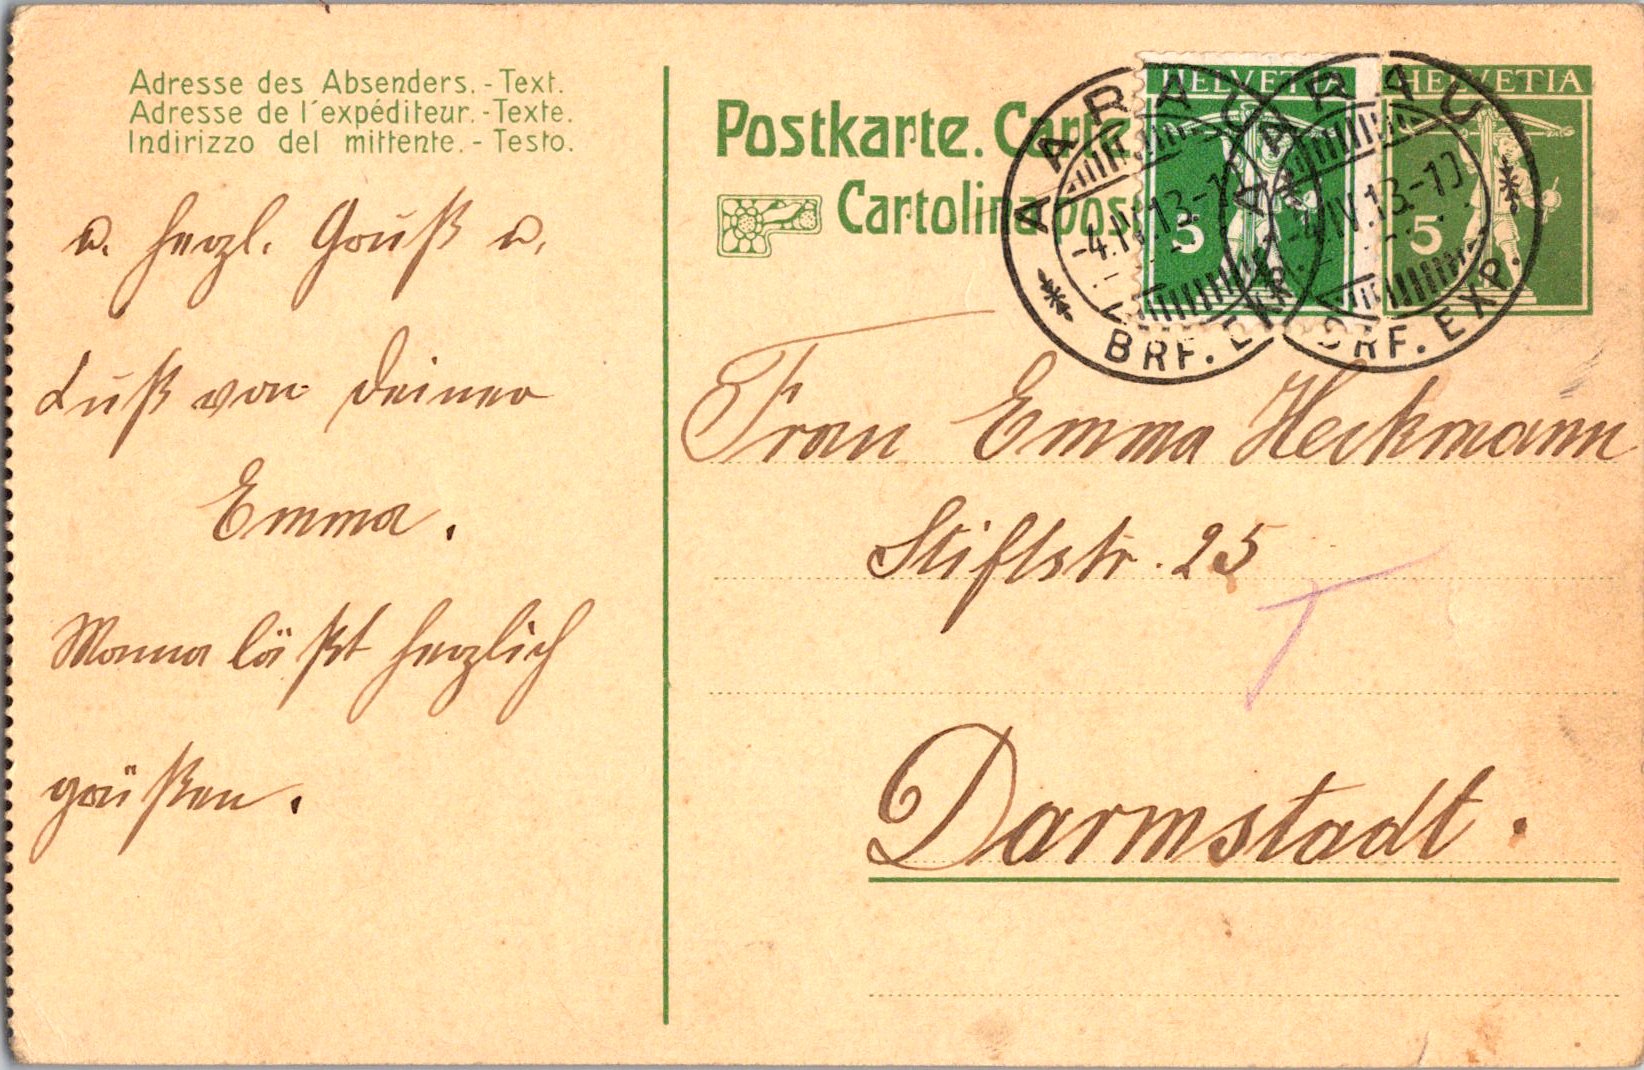 Adresse des Absenders. - Text.
Adresse de l'expéditeur. - Texte.
Indirizzo del mittente. - Testo.
u. herzl. Gruß u.
Kuß von Deiner
Emma.
Mama läßt herzlich
grüßen.
Postkarte. Carte
Cartolina post
HELVETIA
5
HELVETIA
5
AARAU
-4.IV.13.-10
BRF. EXP.
AARAU
-4.IV.13.-10
BRF. EXP.
Frau Emma Heckmann
Stiftstr. 25
Darmstadt.